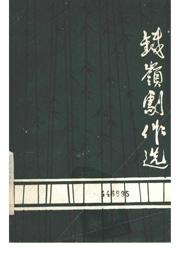 鐵嶺劇作选
446995